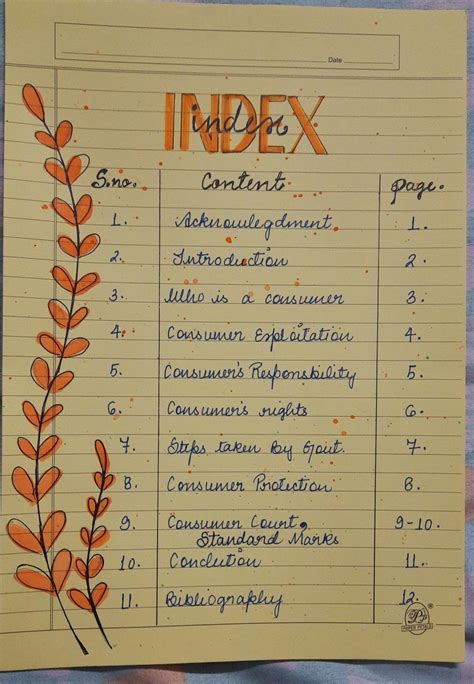 Date
INDEX
index
S.no. Content page.
1. Acknowlegdment 1.
2. Introduction 2.
3. Who is a consumer 3.
4. Consumer Exploitation 4.
5. Consumer's Responsibility 5.
6. Consumer's rights 6.
7. Steps taken by Govt. 7.
8. Consumer Protection 8.
9. Consumer Court, 9-10.
Standard Marks
10. Conclution 11.
11. Bibliography 12.
PAPER PETALS